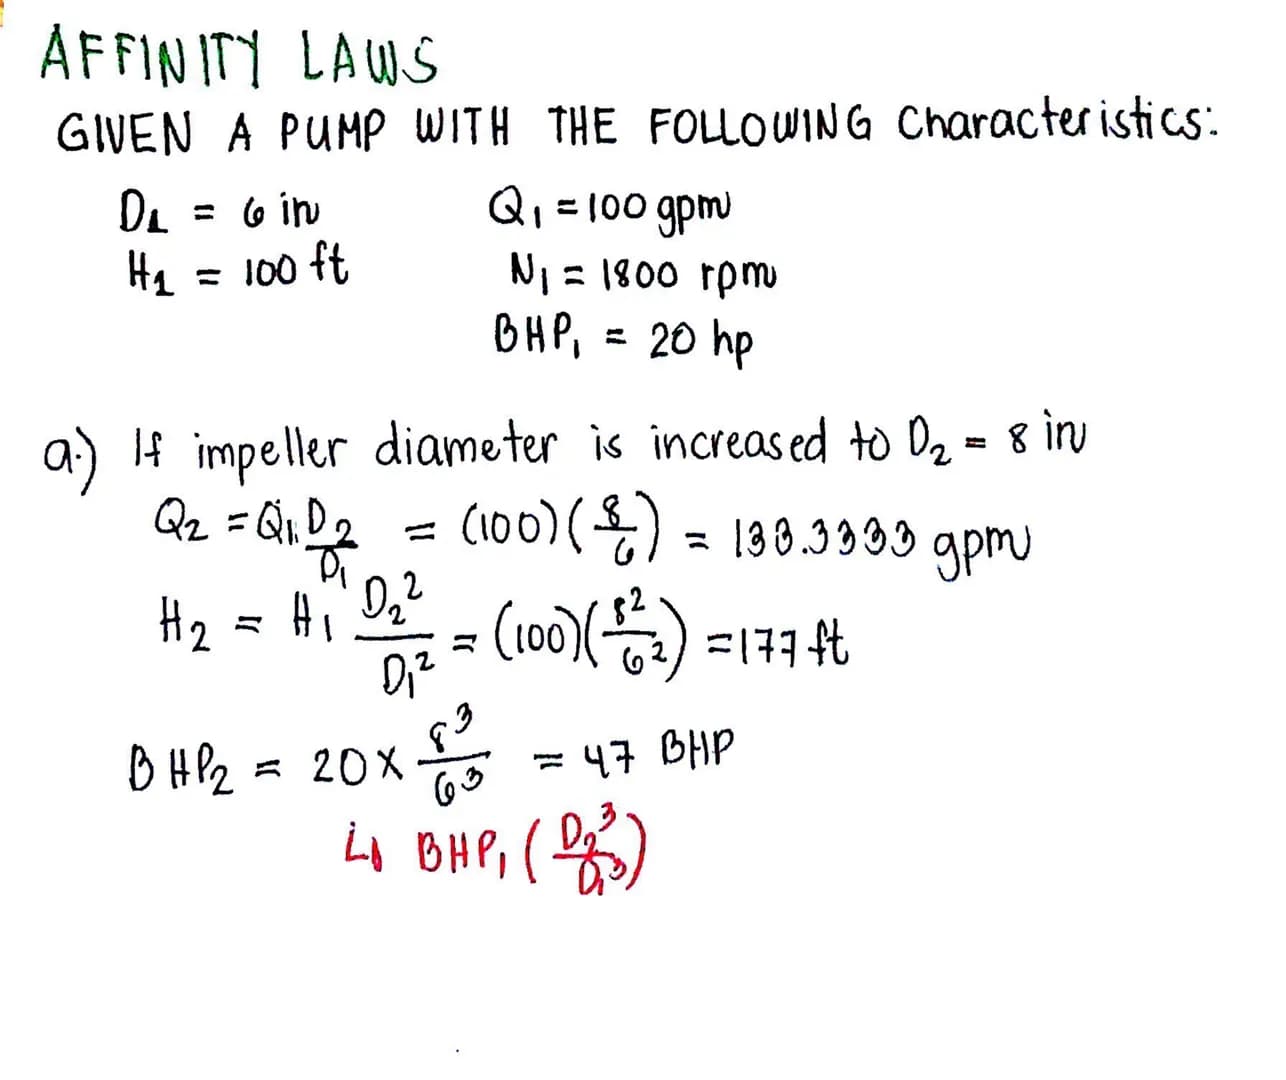 AFFINITY LAWS
GIVEN A PUMP WITH THE FOLLOWING Characteristics:
D₁ = 6 in Q₁ = 100 gpm
H₁ = 100 ft N₁ = 1800 rpm
BHP₁ = 20 hp
a.) If impeller diameter is increased to D₂ = 8 in
Q₂ = Q₁ · D₂/D₁ = (100)(8/6) = 133.3333 gpm
H₂ = H₁ D₂²/D₁² = (100)(8²/6²) = 177 ft
BHP₂ = 20 x 8³/6³ = 47 BHP
↳ BHP₁ (D₂³/D₁³)